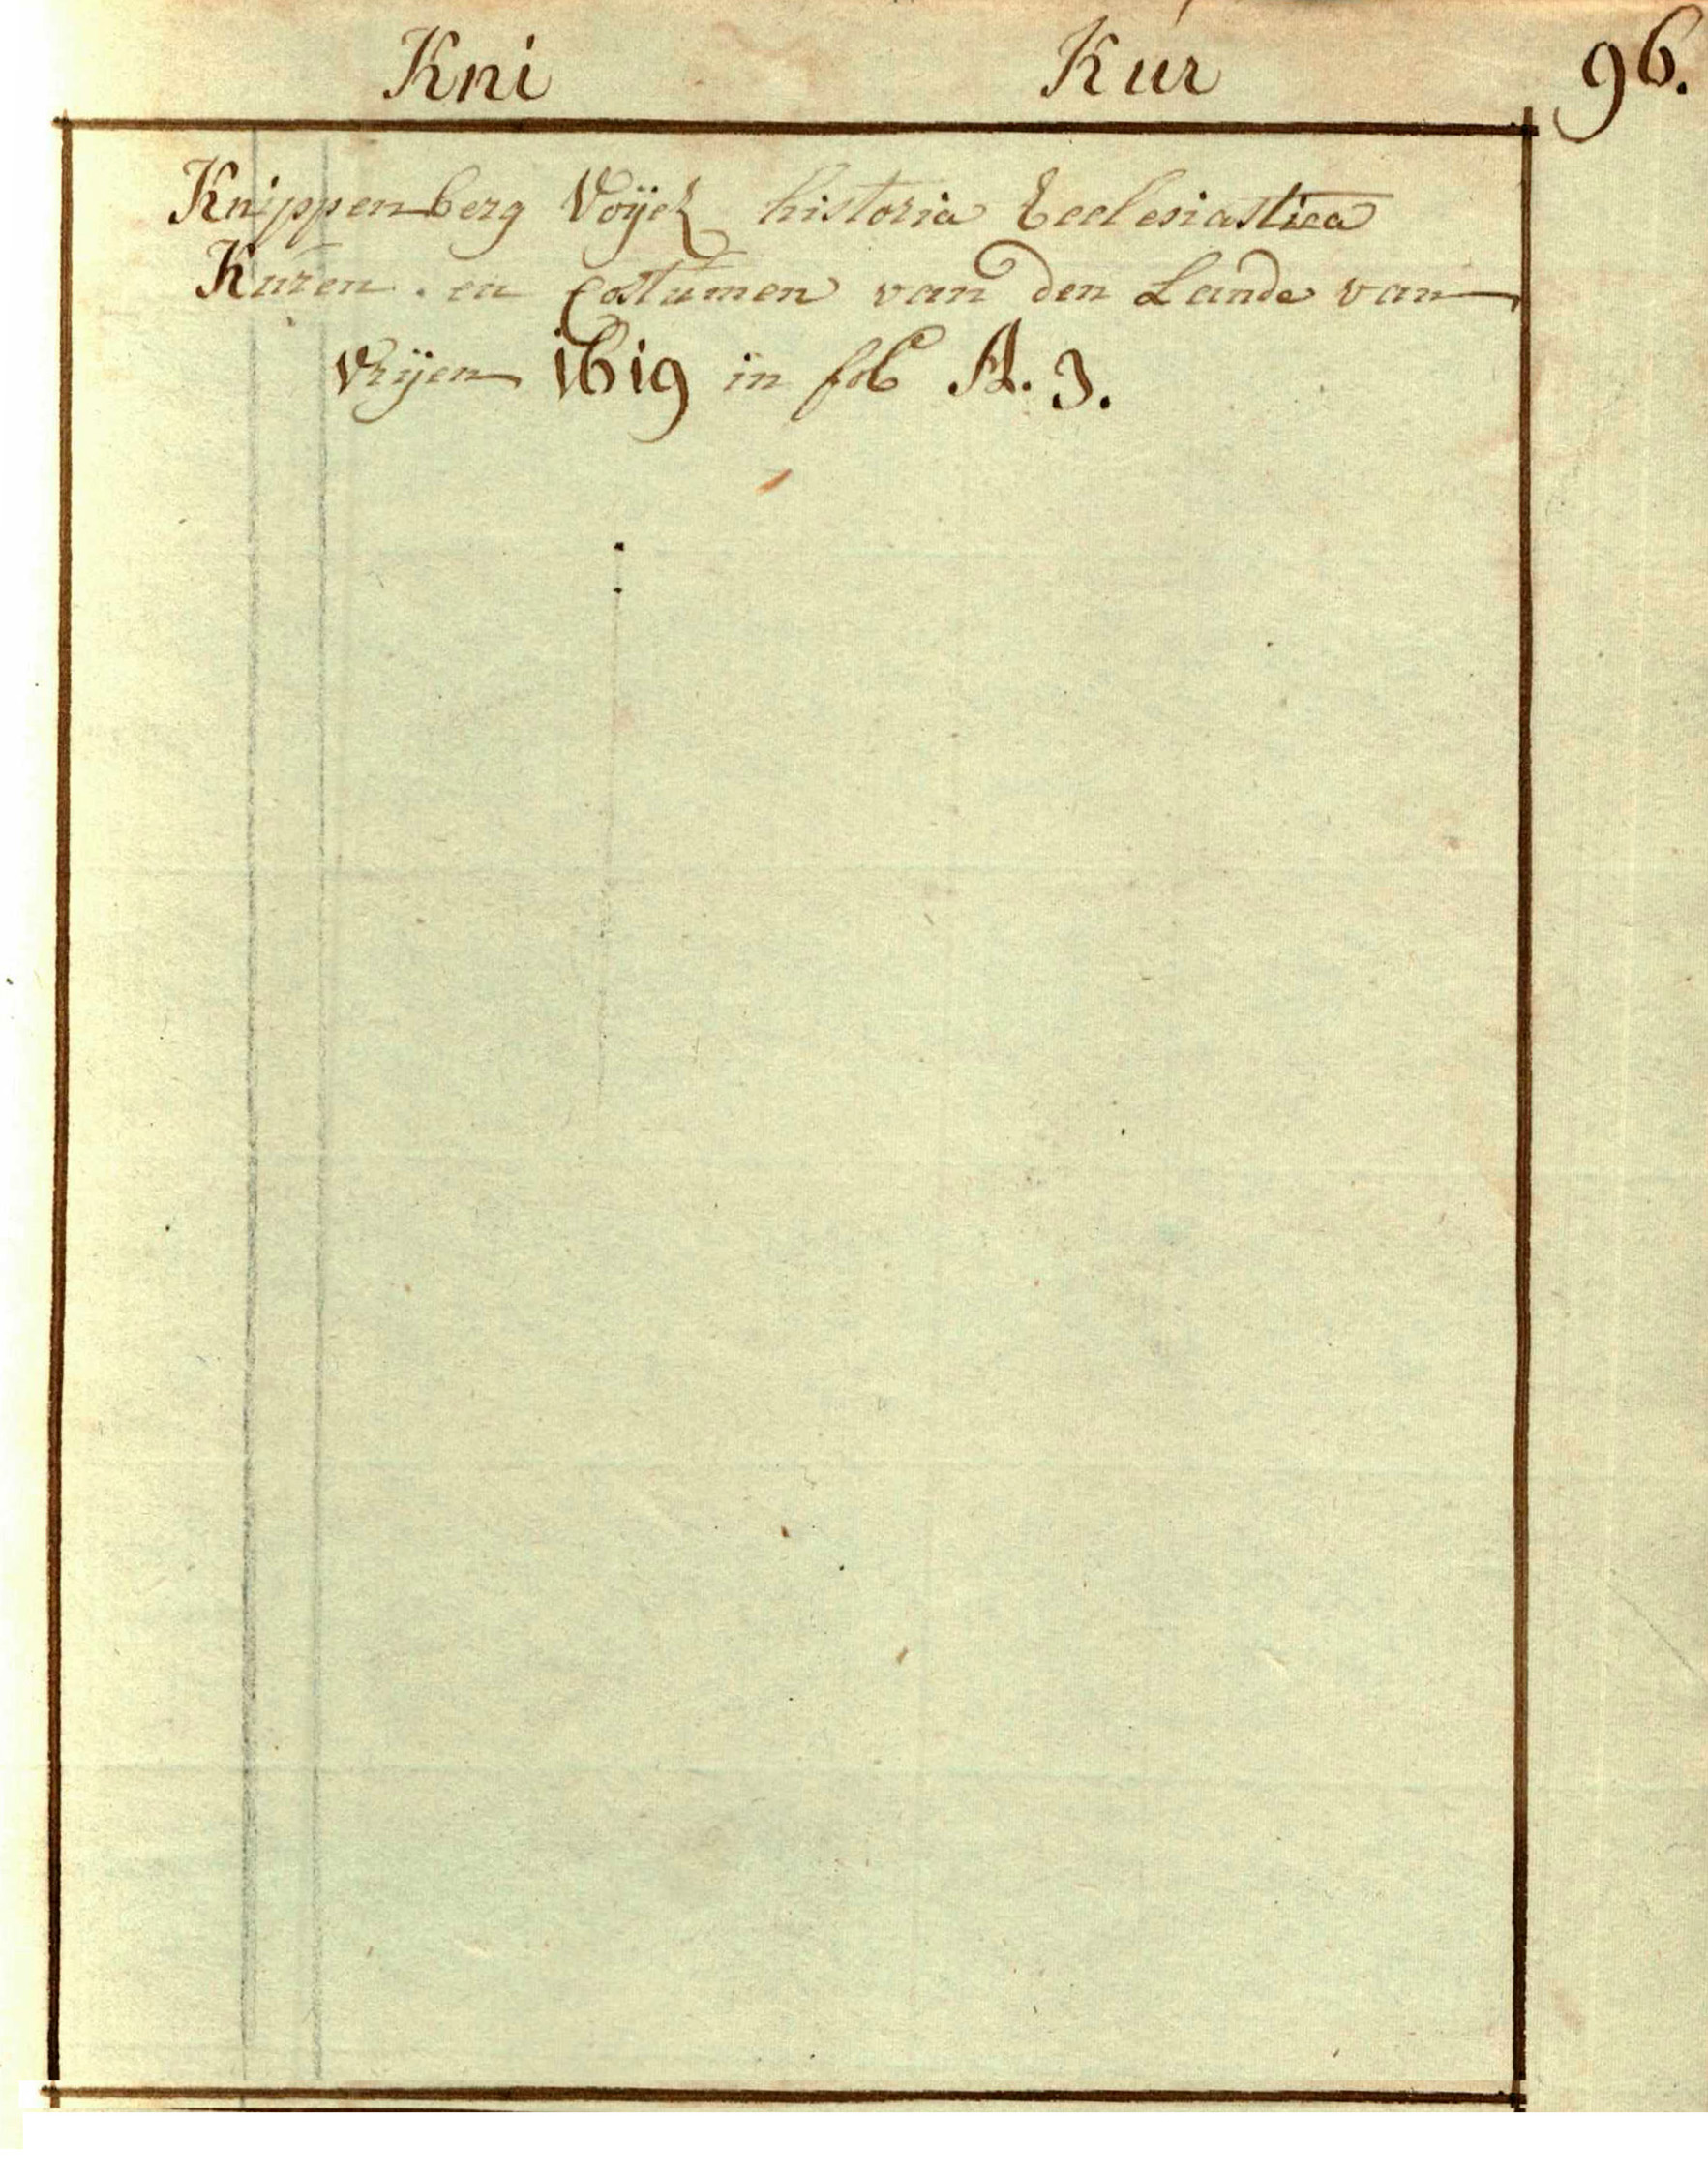 Kni Kur 96.
Knippenberg Voÿez historia Ecclesiastica
Kuren. en Costumen van den Lande van
Vrÿen 1619 in fol A. 3.